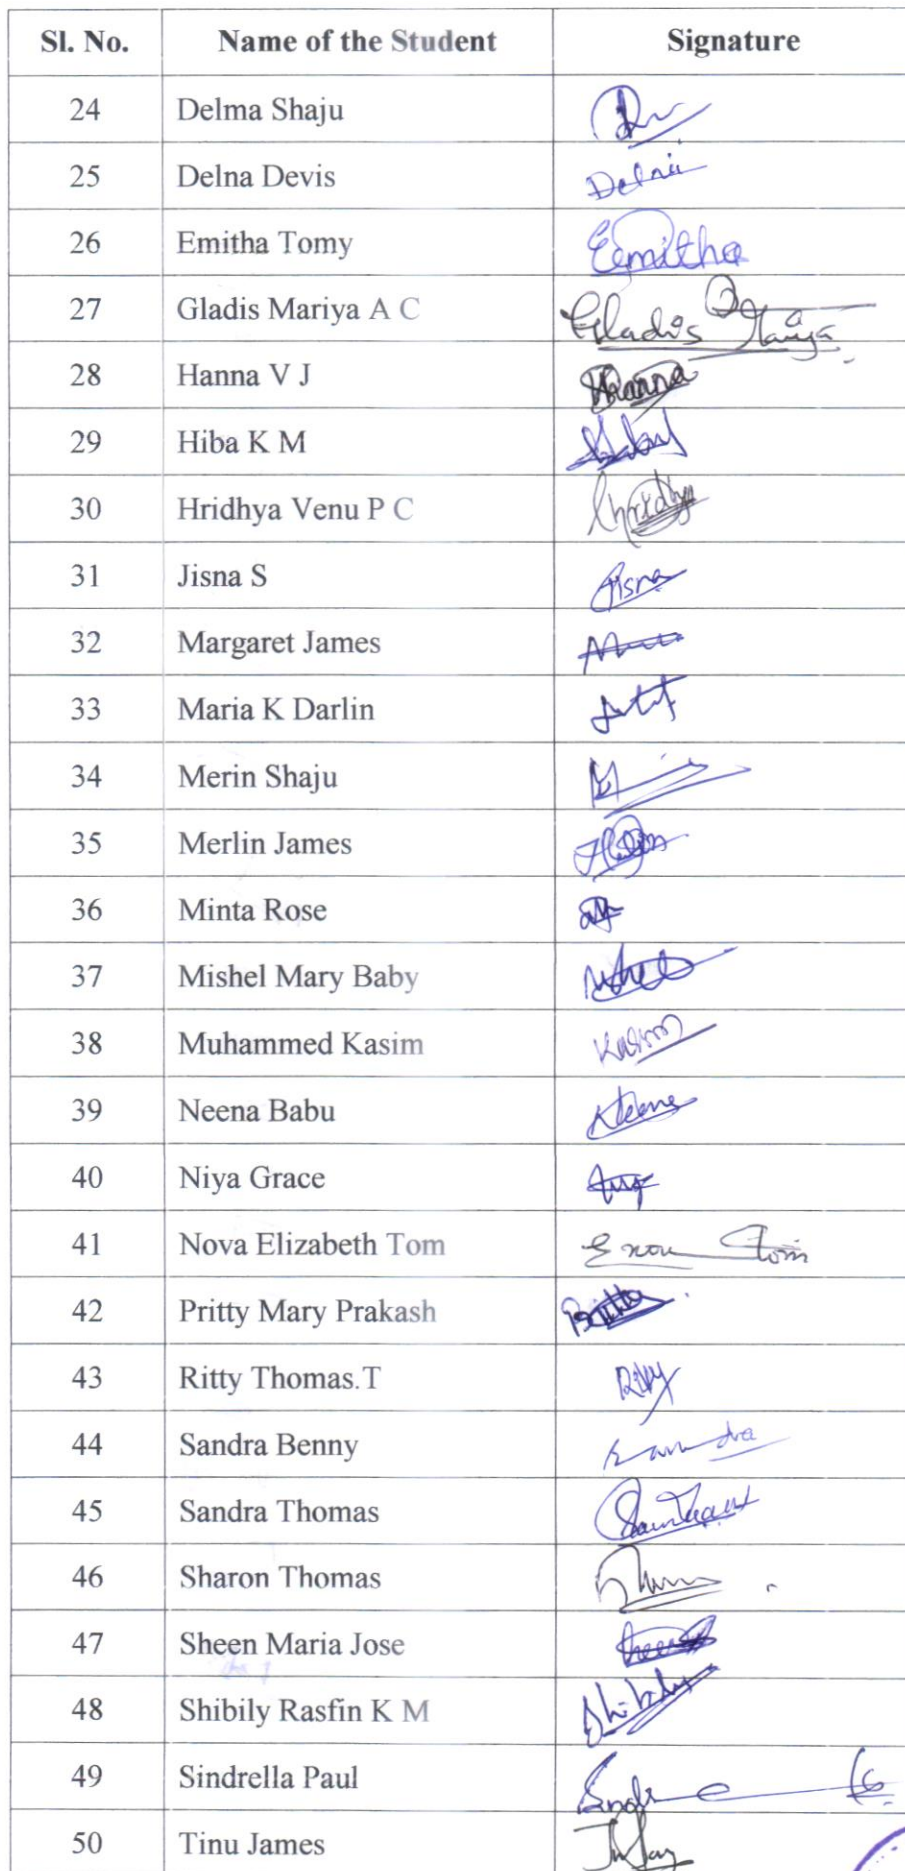 Sl. No. Name of the Student Signature
24 Delma Shaju
25 Delna Devis Delna
26 Emitha Tomy Emitha
27 Gladis Mariya A C Gladis Mariya
28 Hanna V J Hanna
29 Hiba K M
30 Hridhya Venu P C Hridhya
31 Jisna S Jisna
32 Margaret James
33 Maria K Darlin
34 Merin Shaju
35 Merlin James
36 Minta Rose
37 Mishel Mary Baby
38 Muhammed Kasim Kasim
39 Neena Babu Neena
40 Niya Grace
41 Nova Elizabeth Tom
42 Pritty Mary Prakash
43 Ritty Thomas.T Ritty
44 Sandra Benny Sandra
45 Sandra Thomas
46 Sharon Thomas
47 Sheen Maria Jose
48 Shibily Rasfin K M Shibily
49 Sindrella Paul
50 Tinu James